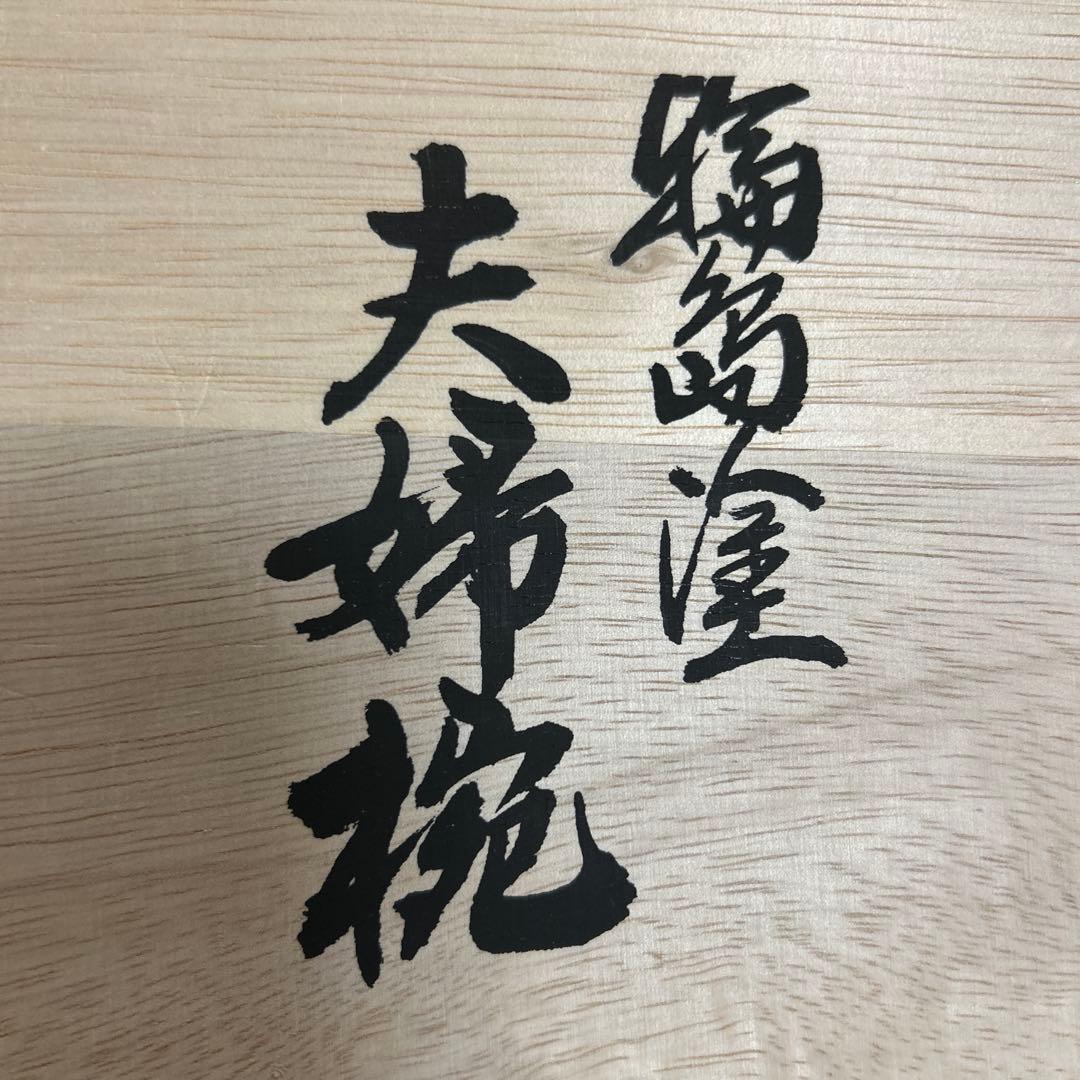 輪島塗
夫婦椀